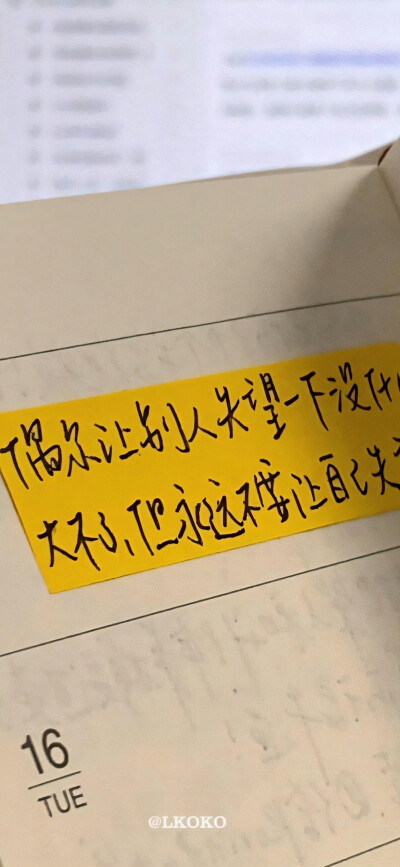 偶尔让别人失望一下没什
大不了,但永远不要让自己失
16
TUE
@LKOKO